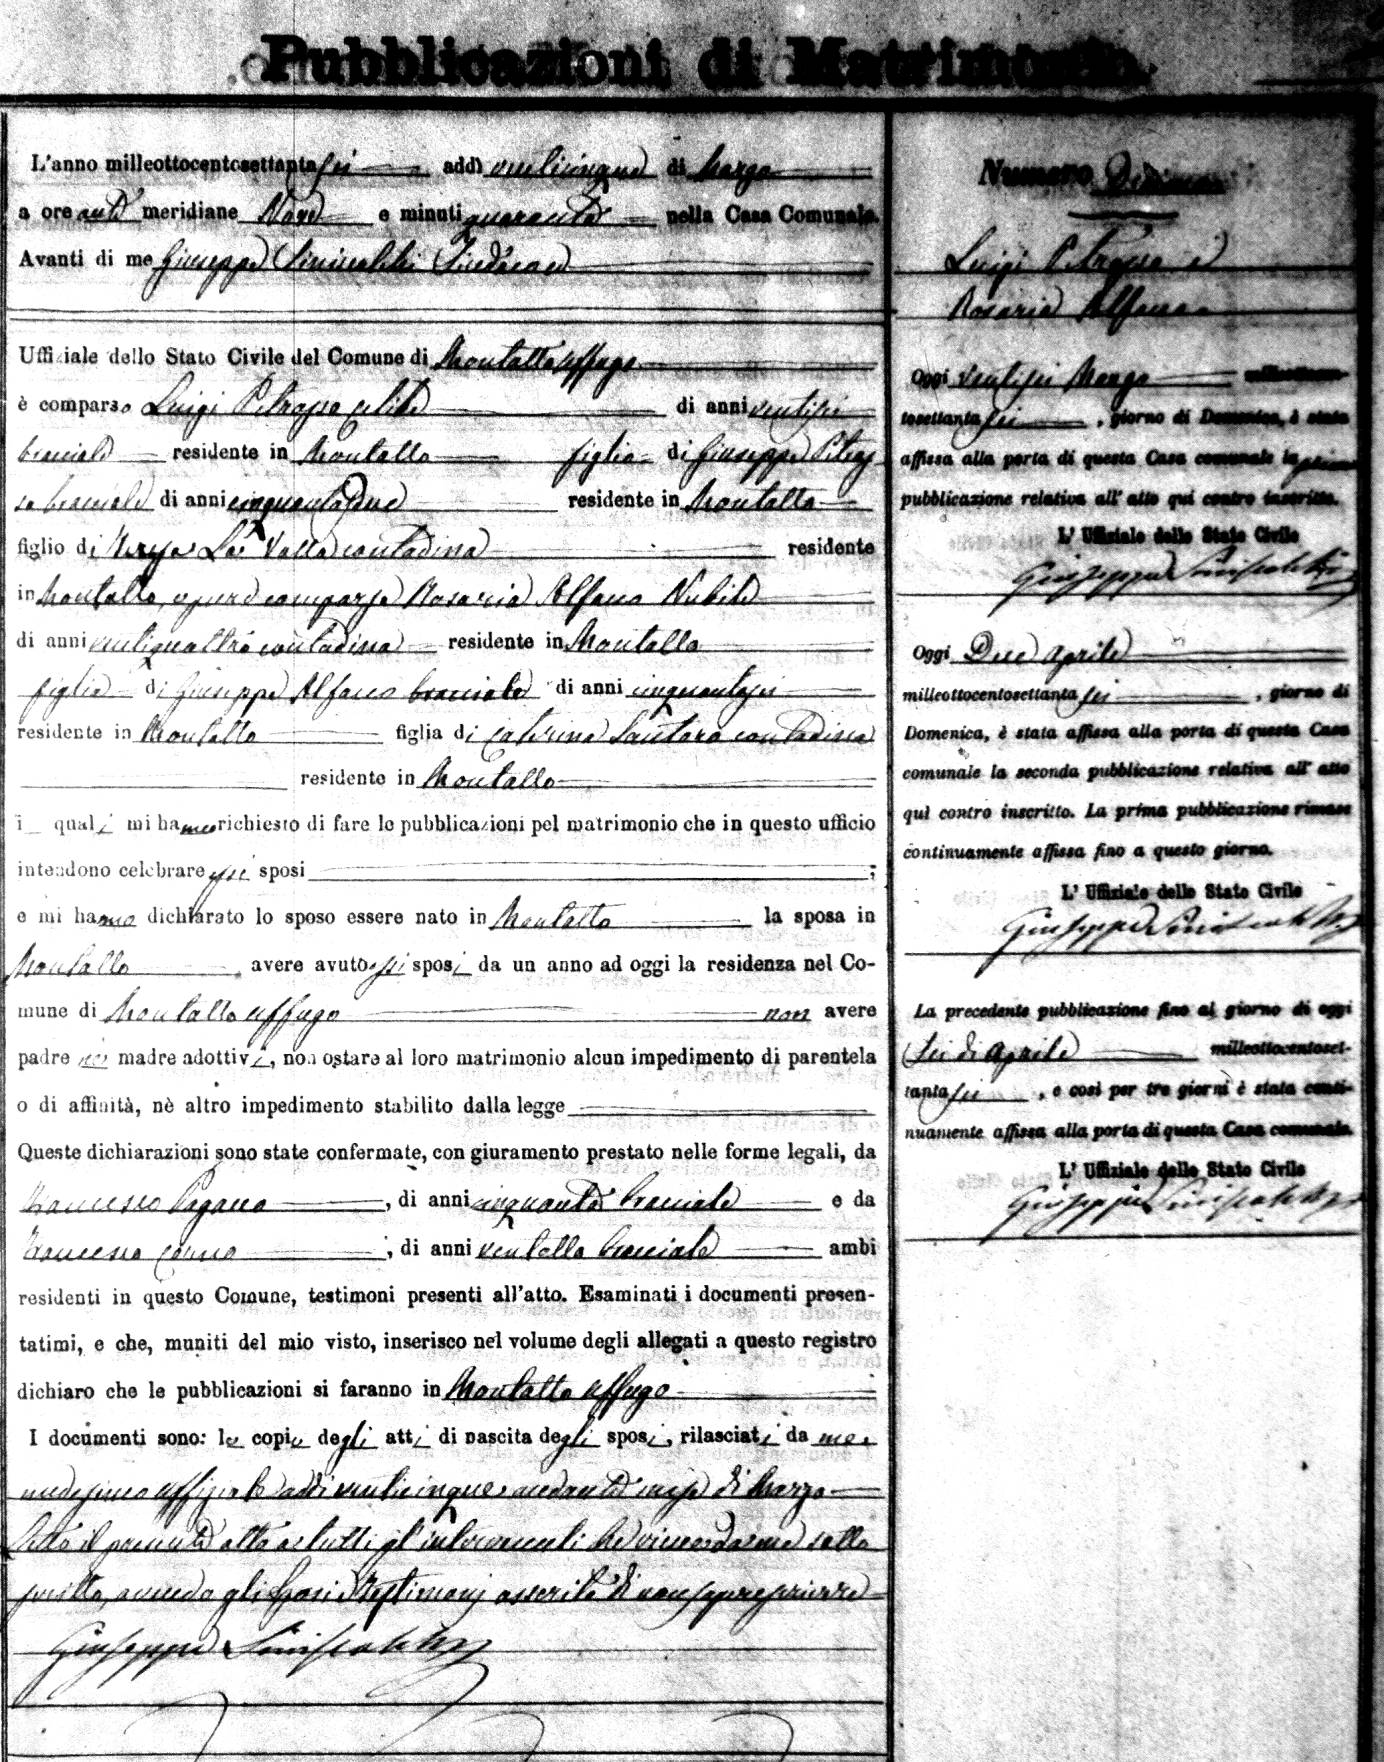 Pubblicazioni di Matrimonio.
L'anno milleottocentosettantasei addì venticinque di Marzo
a ore anti meridiane Nove e minuti quaranta nella Casa Comunale.
Avanti di me Giuseppe Siniscalchi Sindaco
Uffiziale dello Stato Civile del Comune di Montalto Uffugo
è comparso Luigi Petrasso celibe di anni ventisei
bracciale residente in Montalto figlio di Giuseppe Petras
so bracciale di anni cinquantadue residente in Montalto
figlio di La Valle contadina residente
in Montalto, è pure comparsa Rosaria Alfano Nubile
di anni ventiquattro contadina residente in Montalto
figlia di Giuseppe Alfano bracciale di anni cinquantasei
residente in Montalto figlia di Caterina Santoro contadina
residente in Montalto
i quali mi hanno richiesto di fare le pubblicazioni pel matrimonio che in questo ufficio
intendono celebrare essi sposi ;
e mi hanno dichiarato lo sposo essere nato in Montalto la sposa in
Montalto, avere avuto essi sposi da un anno ad oggi la residenza nel Co-
mune di Montalto Uffugo non avere
padre né madre adottivi, non ostare al loro matrimonio alcun impedimento di parentela
o di affinità, nè altro impedimento stabilito dalla legge
Queste dichiarazioni sono state confermate, con giuramento prestato nelle forme legali, da
Francesco Pagano, di anni cinquanta bracciale e da
Francesco, di anni ventotto bracciale ambi
residenti in questo Comune, testimoni presenti all'atto. Esaminati i documenti presen-
tatimi, e che, muniti del mio visto, inserisco nel volume degli allegati a questo registro
dichiaro che le pubblicazioni si faranno in Montalto Uffugo
I documenti sono: le copie degli atti di nascita degli sposi, rilasciati da me
medesimo uffiziale addì venticinque andante mese di Marzo
Letto il presente atto a tutti gl'intervenuti si è da me sotto
scritto, avendo gli sposi e testimoni asserito di non sapere scrivere
Giuseppe Siniscalchi
Numero Decimo
Luigi Petrasso e
Rosaria Alfano
Oggi ventisei Marzo milleottocen-
tosettantasei, giorno di Domenica, è stata
affissa alla porta di questa Casa comunale la prima
pubblicazione relativa all'atto qui contro inscritto.
L'Uffiziale dello Stato Civile
Giuseppe Siniscalchi
Oggi Due Aprile
milleottocentosettantasei, giorno di
Domenica, è stata affissa alla porta di questa Casa
comunale la seconda pubblicazione relativa all'atto
quì contro inscritto. La prima pubblicazione rimase
continuamente affissa fino a questo giorno.
L'Uffiziale dello Stato Civile
Giuseppe Siniscalchi
La precedente pubblicazione fino al giorno di oggi
Sei di Aprile milleottocentoset-
tantasei, e così per tre giorni è stata conti-
nuamente affissa alla porta di questa Casa comunale.
L'Uffiziale dello Stato Civile
Giuseppe Siniscalchi